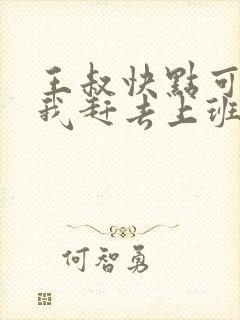 王叔快點可
我赶去上班
何智勇